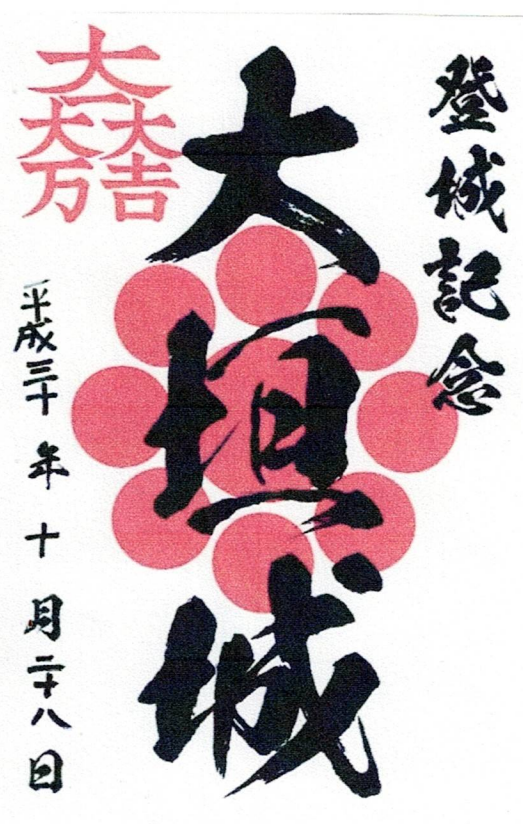 登城記念
大垣城
大一大万大吉
平成三十年十月二十八日